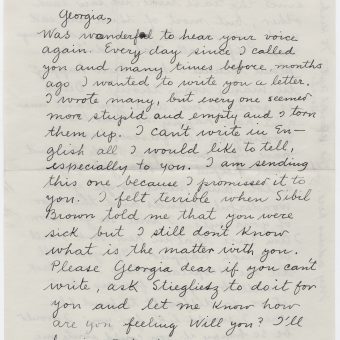 Georgia,
Was wonderful to hear your voice
again. Every day since I called
you and many times before, months
ago I wanted to write you a letter.
I wrote many, but every one seemed
more stupid and empty and I torn
them up. I can't write in En-
glish all I would like to tell,
especially to you. I am sending
this one because I promissed it to
you. I felt terrible when Sibil
Brown told me that you were
sick but I still don't know
what is the matter with you.
Please Georgia dear if you can't
write, ask Stieglietz to do it for
you and let me know how
are you feeling Will you? I'll